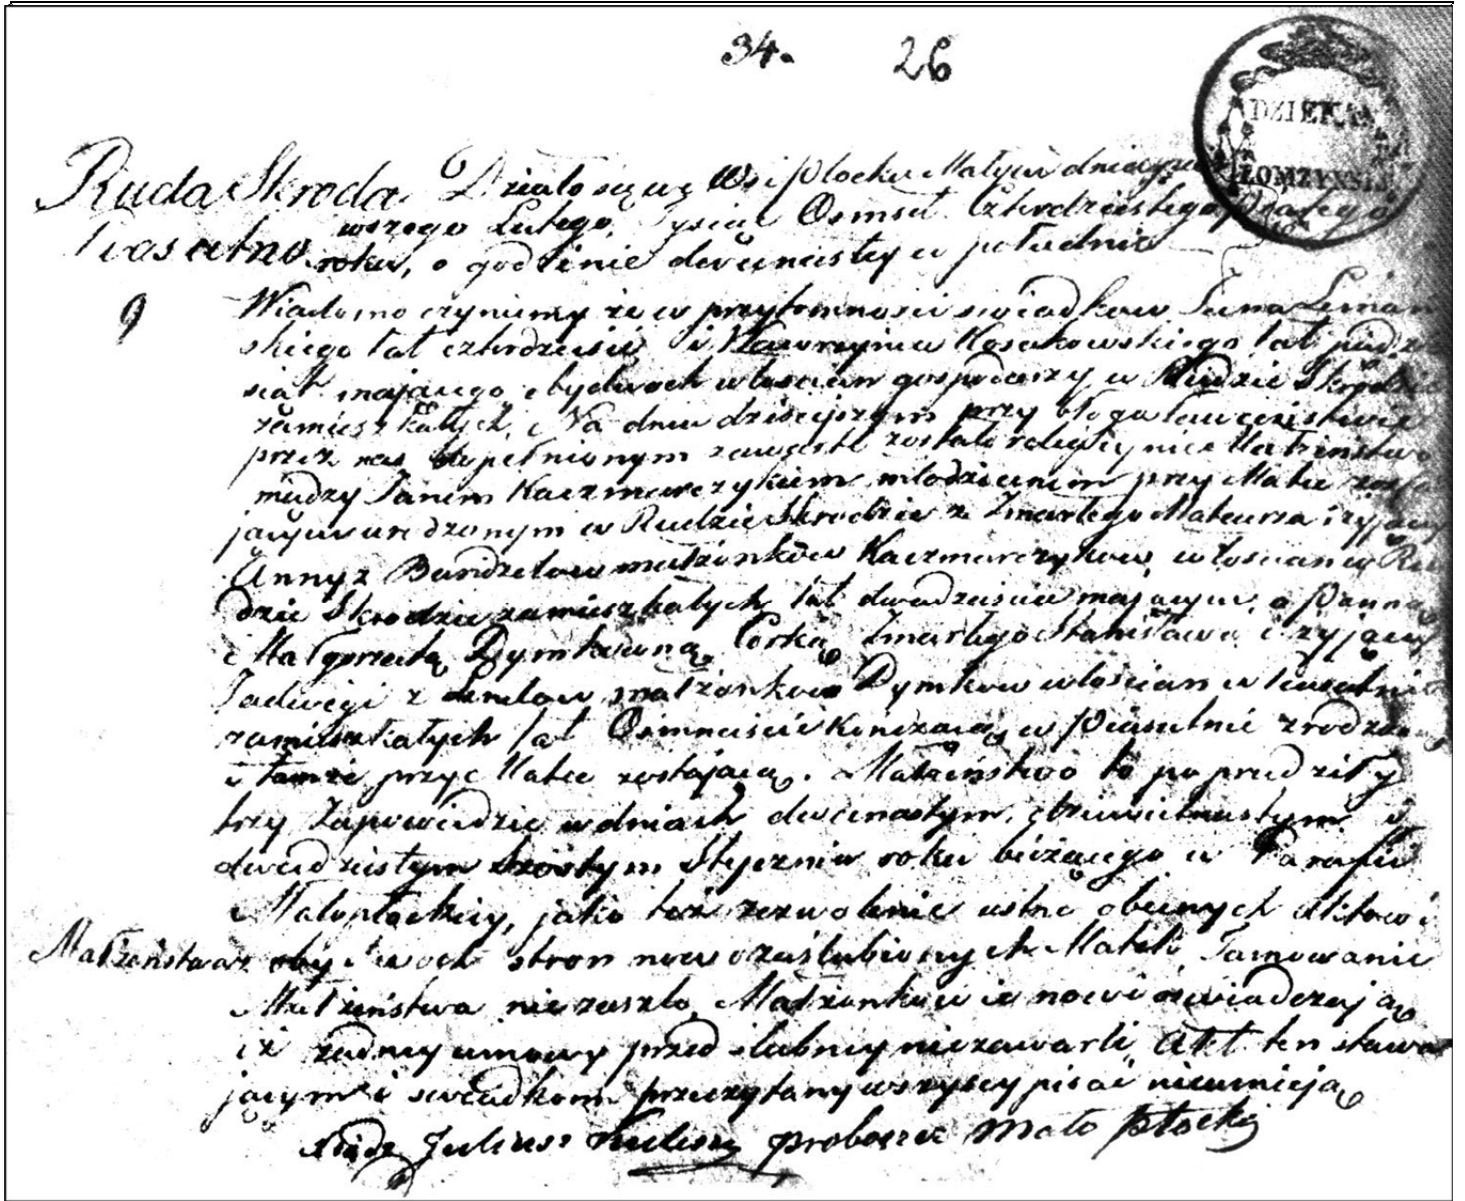 34. 26
DZIEKAN
ŁOMZYNSKI
Ruda Skroda. Działo się we Wsi Płocku Małym dnia
wszego Lutego, Tysiąc Osmset Czterdziestego Piątego
roku, o godzinie dwunastey w południe
9
Wiadomo czyniemy że w przytomności swiadkow Jana Leman
skiego lat czterdzieści i Wawrzyńca Kosakowskiego lat
siąt mającego obydwoch włościan gospodarzy w Rudzie Skrodzie
zamieszkałych, Na dniu dzisieyszym przy błogosławieństwie
przez nas dopełnionym zawarte zostało religiyne Małżeństwo
między Janem Kaczmarczykiem młodzianem przy Matce zosta
jącym urodzonym w Rudzie Skrodzie z Zmarłego Mateusza i żyjącey
Anny z małżonków Kaczmarczyków, włościan w Ru
dzie Skrodzie zamieszkałych lat dwadzieścia mającym, a Panną
Małgorzatą Dymkówną, Córką Zmarłego Stanisława i żyjącey
Jadwigi z małżonków Dymków włościan w
zamieszkałych lat Osmnaście kończącą, w zrodzoną
i tamże przy Matce zostającą. Małżeństwo to poprzedziły
trzy Zapowiedzie w dniach dwunastym, dziewietnastym i
dwudziestym szóstym Stycznia roku bieżącego w Parafii
Małopłockiey, jako też zezwolenie ustne obecnych aktowi
Małżeństwa obydwoch stron nowozaślubionych Matek, Tamowanie
Małżeństwa nie zaszło, Małżonkowie nowi oświadczają
iż żadney umowy przedślubney nie zawarli, Akt ten stawa
jącym i swiadkom przeczytany wszyscy pisać nieumieją
Xiądz Juliusz proboszcz Mało Płocki